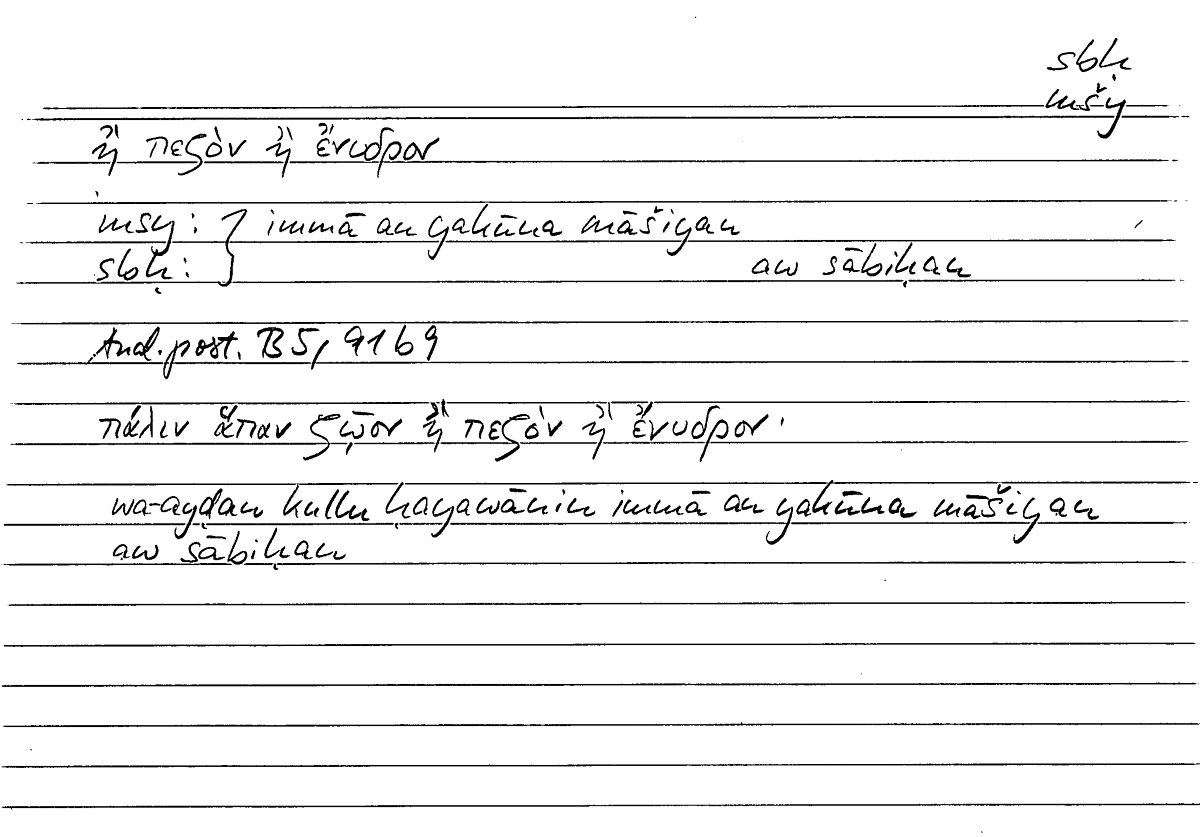 sbḥ
mšy
ἢ πεζὸν ἢ ἔνυδρον
mšy : } immā an yakūna māšiyan
sbḥ : aw sābiḥan
And. post. B5, 91b9
πάλιν ἅπαν ζῷον ἢ πεζὸν ἢ ἔνυδρον·
wa-ayḍan kullu ḥayawānin immā an yakūna māšiyan
aw sābiḥan